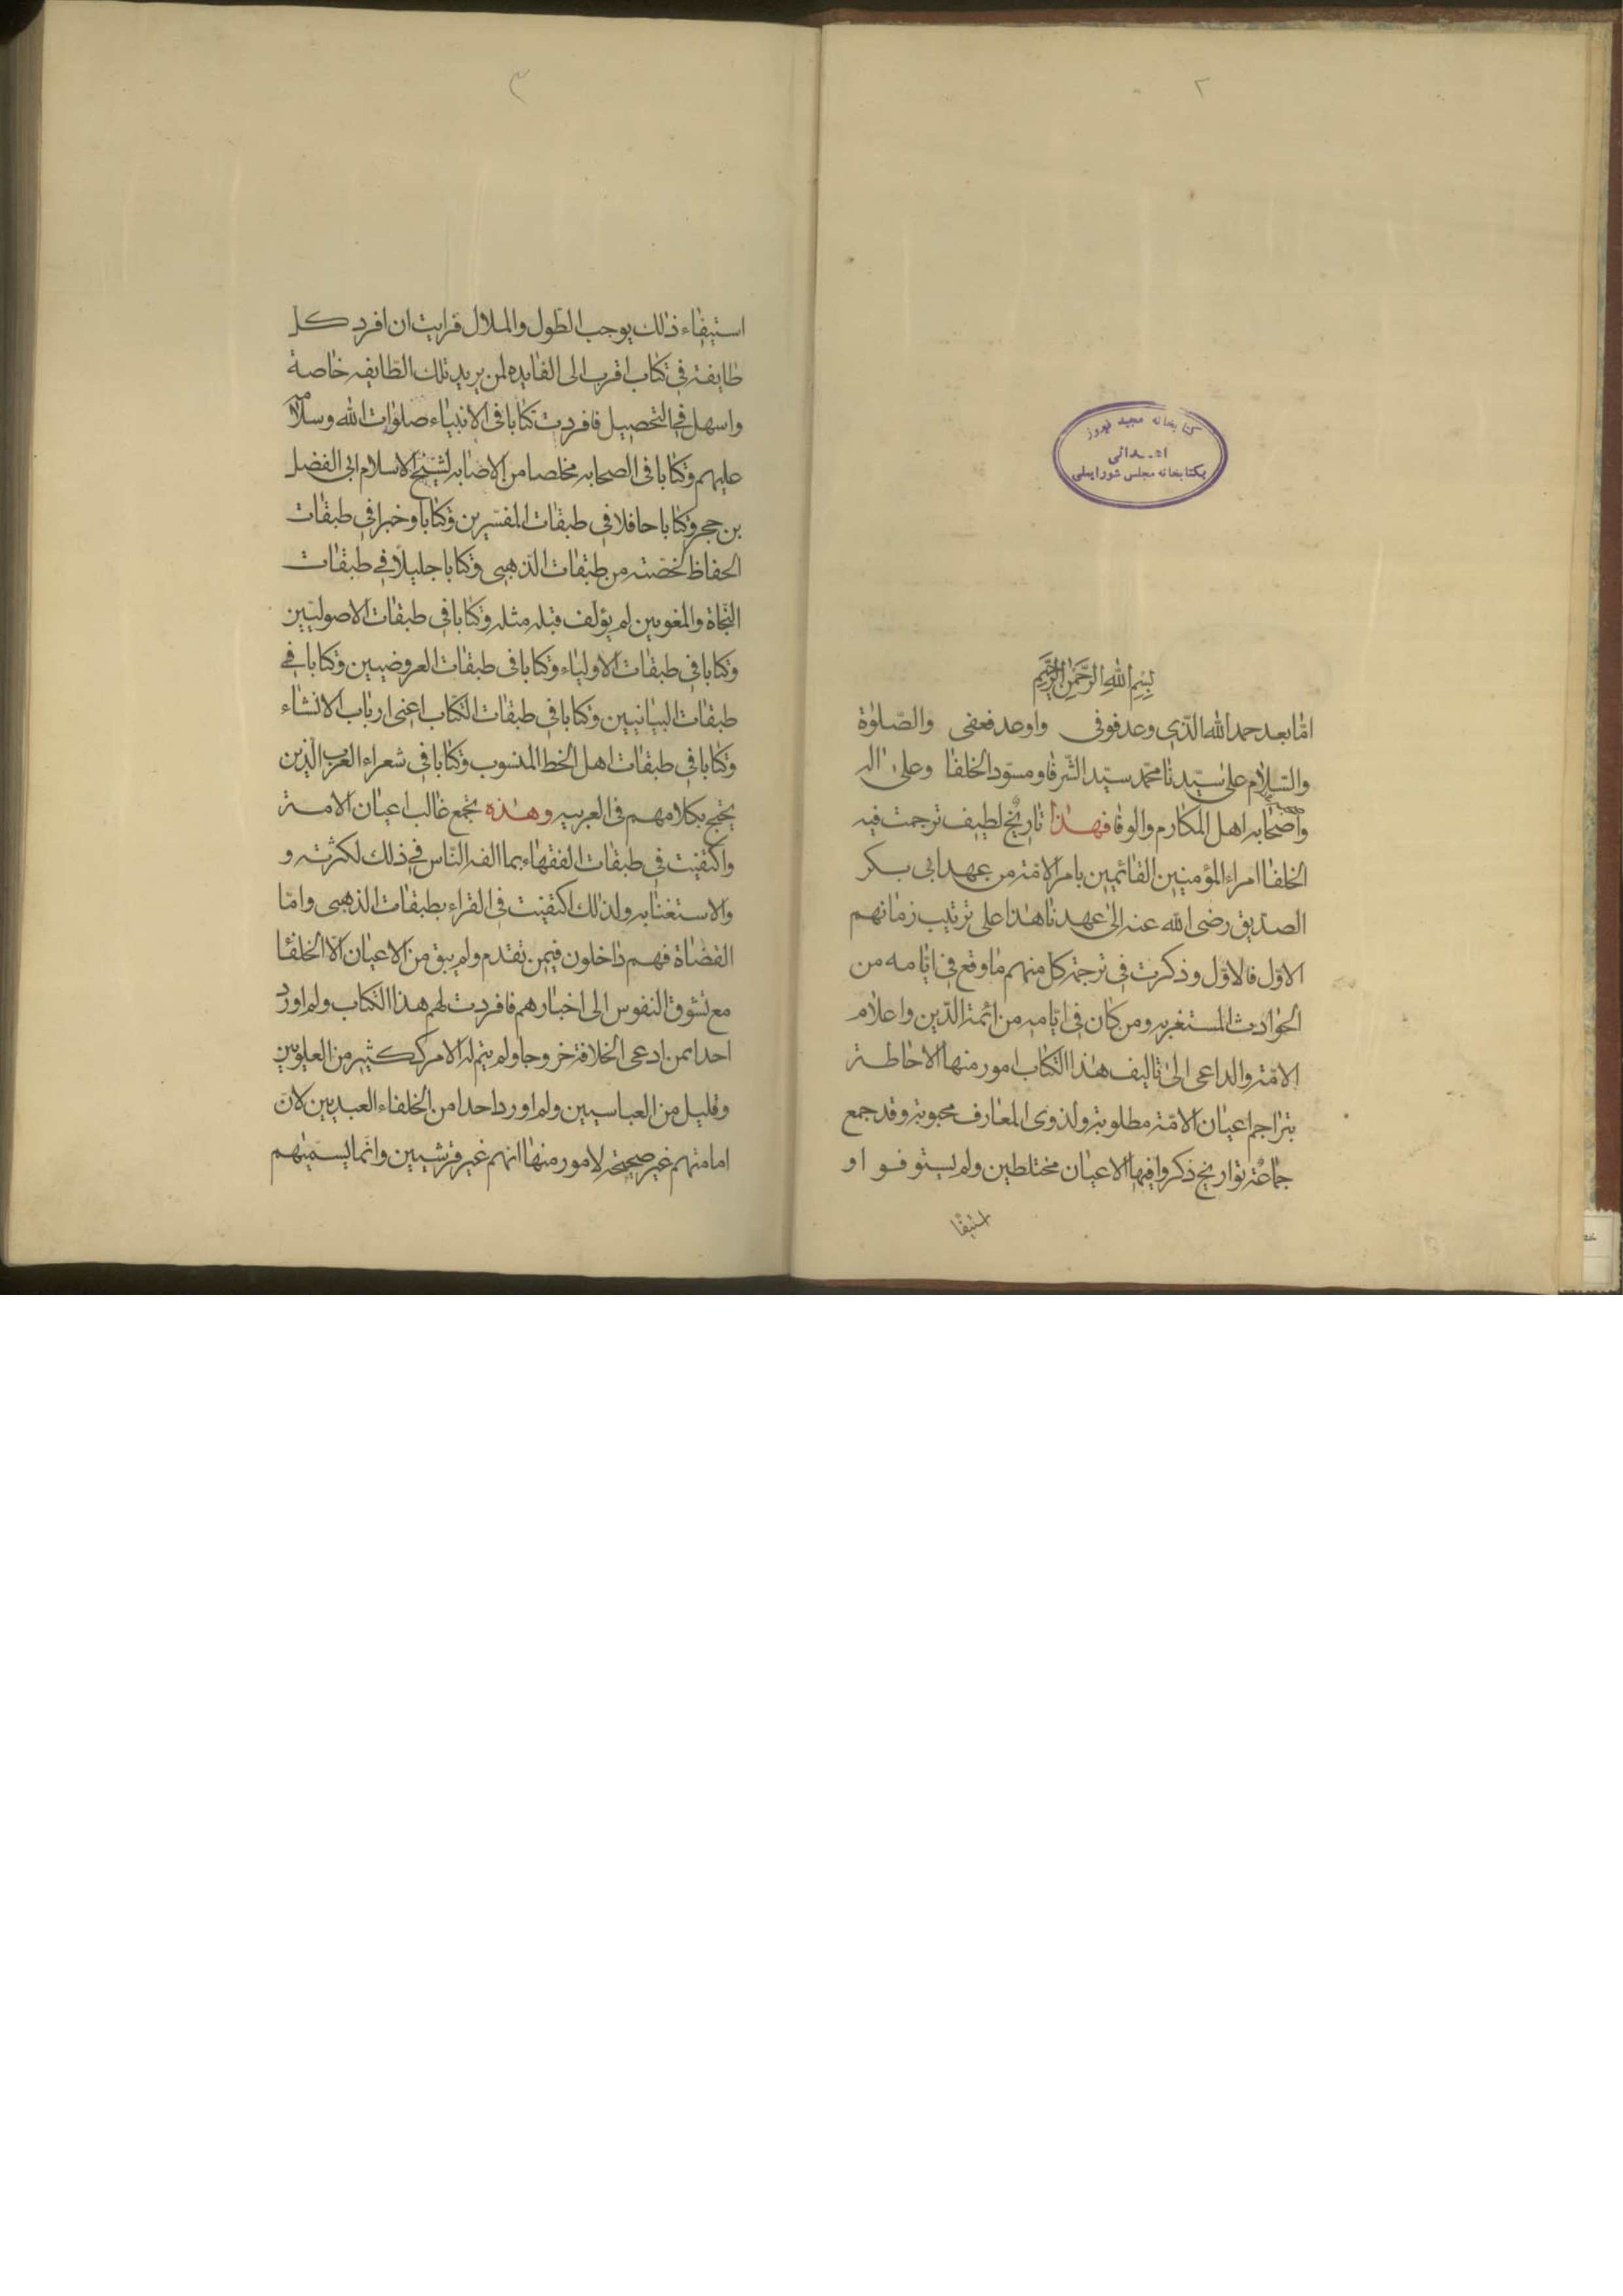 ٢
كتابخانه مجيد فيروز
اهدائى
بكتابخانه مجلس شورايملى
بِسْمِ اللهِ الرَّحْمٰنِ الرَّحِيمِ
امّا بعد حمد الله الّذي وعد فوفى واوعد فعفى والصّلوٰة
والسّلام على سيّدنا محمّد سيّد الشّرفا ومسوّد الخلفا وعلى اله
واصحابه اهل المكارم والوفا فهذا تاريخ لطيف ترجمت فيه
الخلفا امراء المؤمنين القائمين بامر الامّة من عهد ابى بكر
الصديق رضى الله عنه الى عهدنا هذا على ترتيب زمانهم
الاوّل فالاوّل وذكرت فى ترجمة كل منهم ما وقع فى ايّامه من
الحوادث المستغربه ومن كان فى ايّامه من ائمة الدّين واعلام
الامّة والداعى الى تاليف هذا الكتاب امور منها الاحاطة
بتراجم اعيان الامّة مطلوبة ولذوى المعارف محبوبة وقد جمع
جماعة تواريخ ذكروا فيها الاعيان مختلطين ولم يستوفوا و
استيفا
٣
استيفاء ذلك يوجب الطّول والملال فرايت ان افرد كل
طايفة فى كتاب اقرب الى الفايده لمن يريد تلك الطّايفه خاصة
واسهل فى التحصيل فافردت كتابا فى الانبياء صلوات الله وسلامه
عليهم وكتابا فى الصحابه مخلصا من الاصابه لشيخ الاسلام ابى الفضل
بن حجر وكتابا حافلا فى طبقات المفسّرين وكتابا وخبرا فى طبقات
الحفاظ لخصته من طبقات الذهبى وكتابا جليلا فى طبقات
النّحاة والمغويين لم يؤلف قبله مثله وكتابا فى طبقات الاصوليّين
وكتابا فى طبقات الاولياء وكتابا فى طبقات العروضيين وكتابا فى
طبقات البيانيين وكتابا فى طبقات الكتّاب اعنى ارباب الانشاء
وكتابا فى طبقات اهل الخط المنسوب وكتابا فى شعراء العرب الّذين
يحتج بكلامهم فى العربيه وهذه تجمع غالب اعيان الامة
واكتفيت فى طبقات الفقهاء بما الفه النّاس فى ذلك لكثرته و
والاستغنا به ولذلك اكتفيت فى القراء بطبقات الذهبى وامّا
القضاة فهم داخلون فيمن تقدم ولم يبق من الاعيان الّا الخلفا
مع تشوق النفوس الى اخبارهم فافردت لهم هذا الكتاب ولم اورد
احدا ممن ادعى الخلافة خروجا ولم يتم له الامر ككثير من العلويين
وقليل من العباسيين ولم اورد احدا من الخلفاء العبديين لان
امامتهم غير صحيحة لامور منها انهم غير قرشيين وانّما يسمّيهم